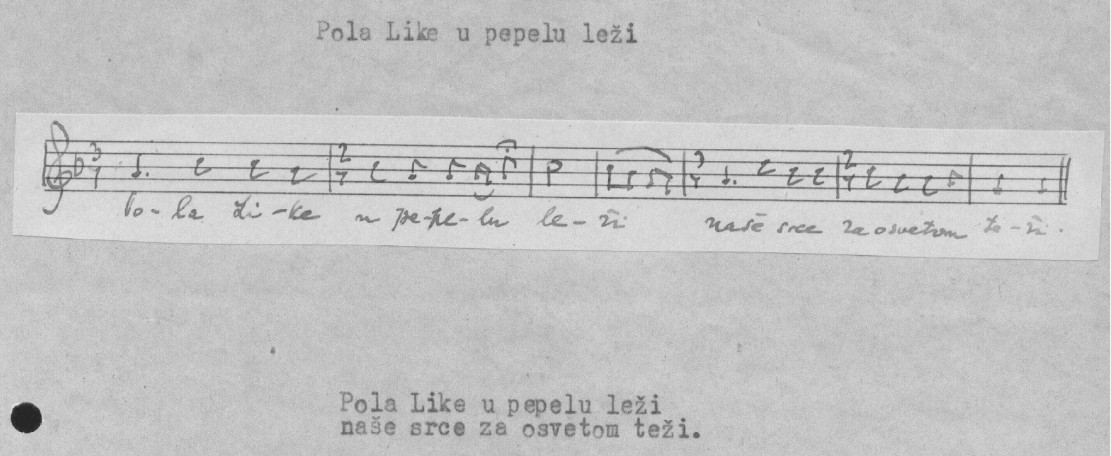 Pola Like u pepelu leži
3 4 2 4 3 4 2 4
Po-la Li-ke u pe-pe-lu le-ži naše srce za osvetom te-ži.
Pola Like u pepelu leži
naše srce za osvetom teži.